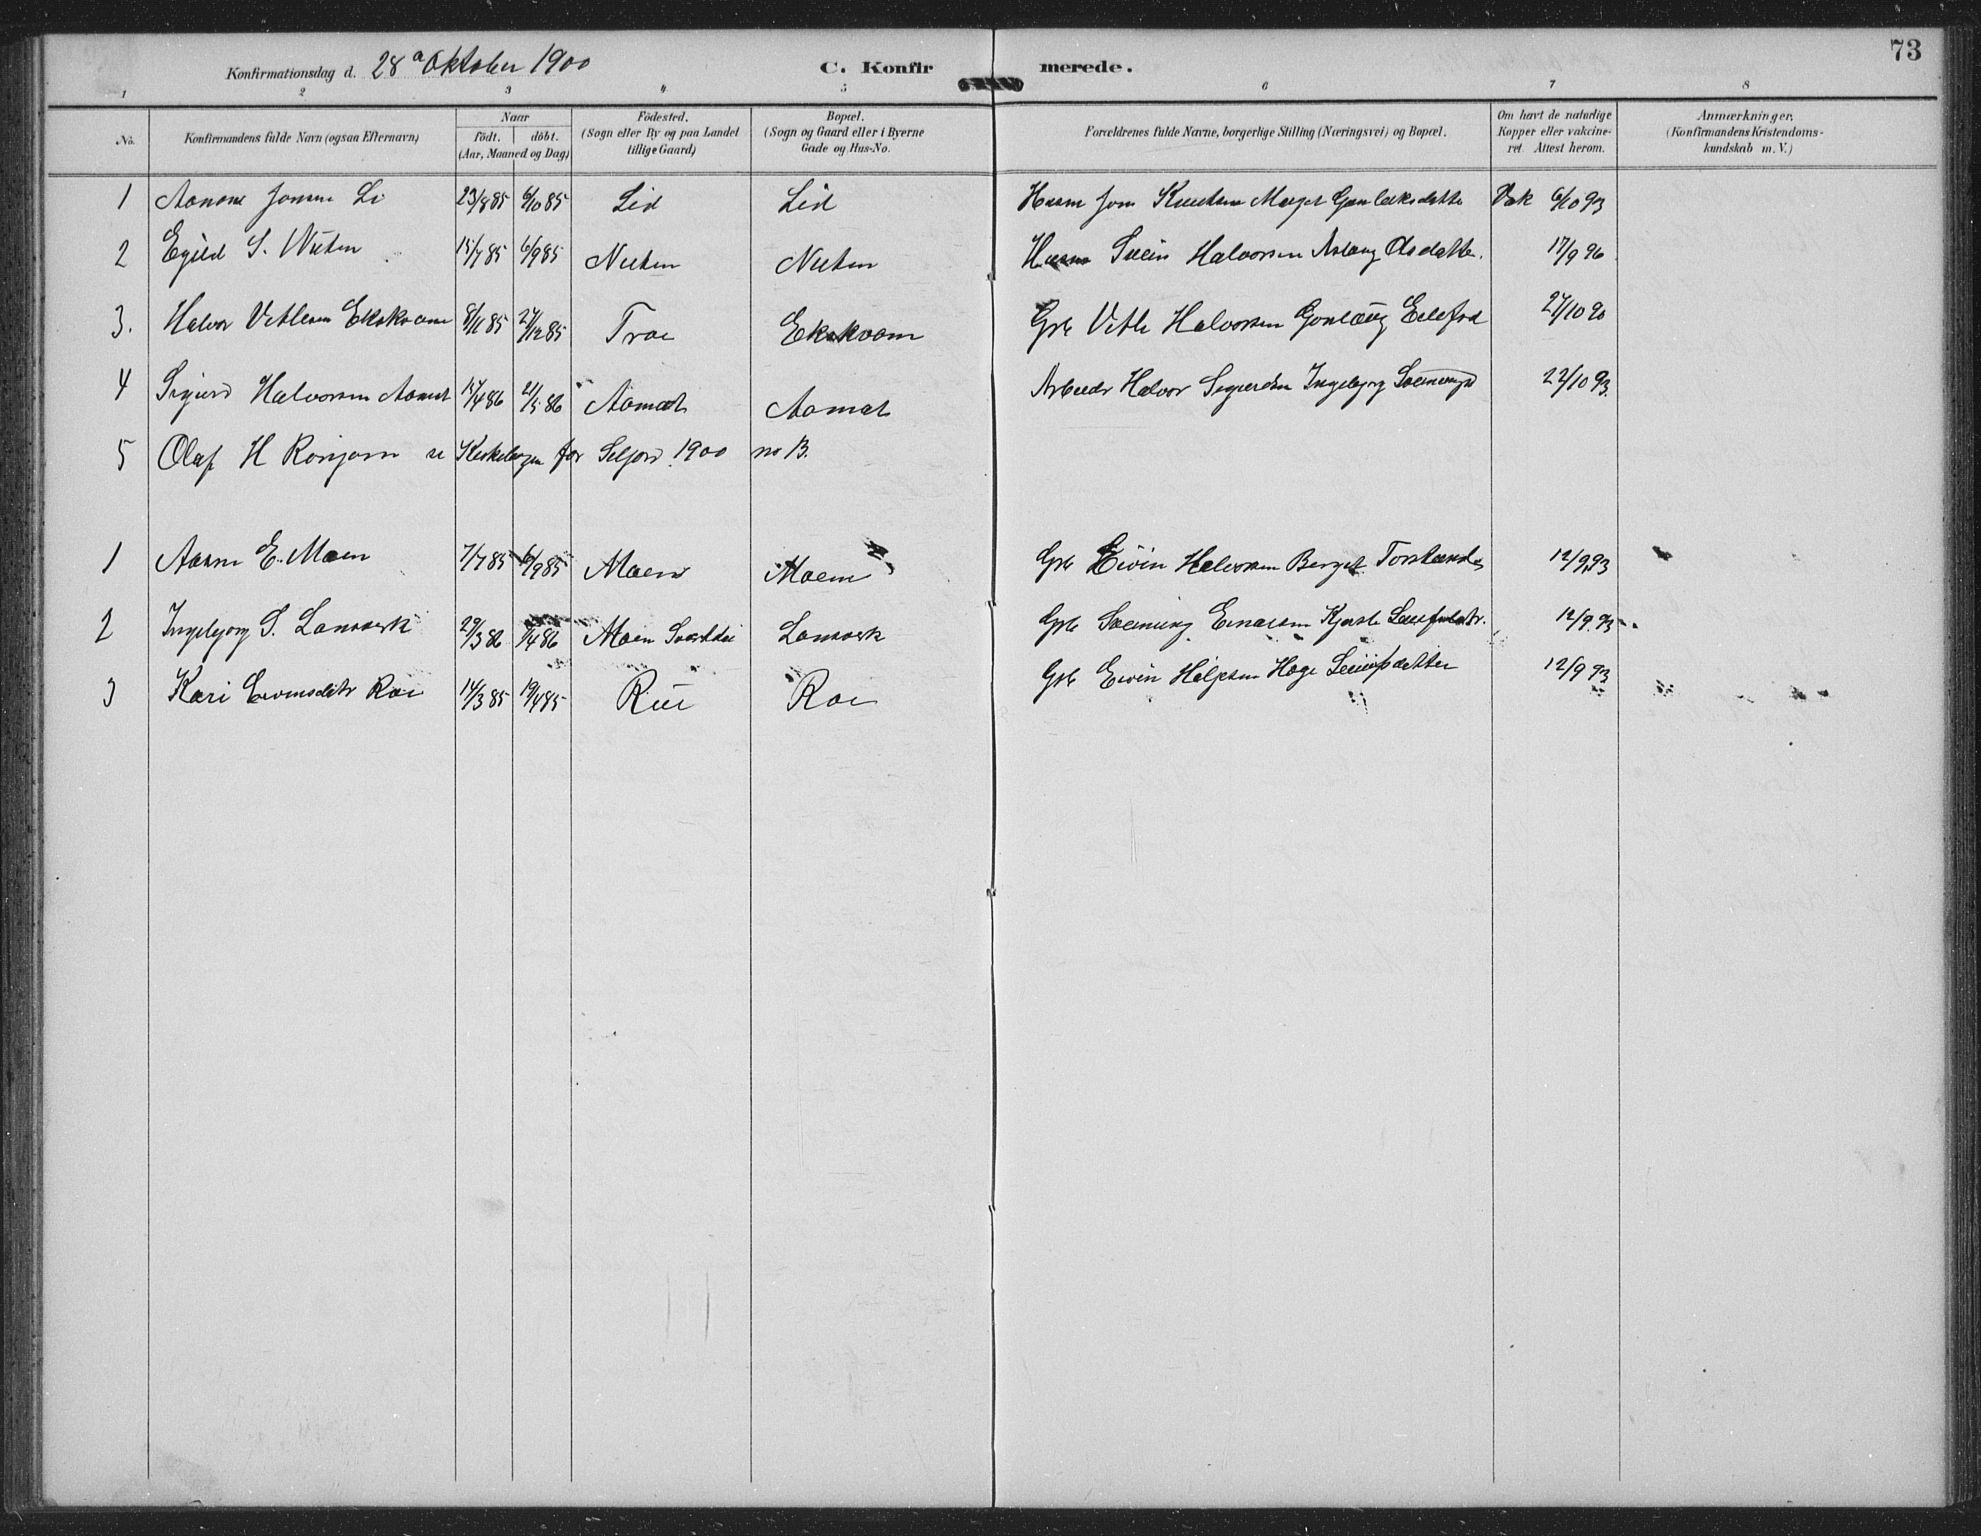 73
Konfirmationsdag d. 28 Oktober 1900 C. Konfirmerede.
1 2 3 4. 5 6 7 8
No. Konfirmandens fulde Navn (ogsaa Efternavn) Naar født. døbt. (Aar, Maaned og Dag) Fødested. (Sogn eller By og paa Landet tillige Gaard) Bopæl. (Sogn og Gaard eller i Byerne Gade og Hus-No. Forældrenes fulde Navne, borgerlige Stilling (Næringsvei) og Bopæl. Om havt de naturlige Kopper eller vakcineret. Attest herom. Anmærkninger. (Konfirmandens Kristendomskundskab m.V.)
1 Aanon Jonsen Li 23/8 85 6/10 85 Lid Lid Husm Jon Knutsen Marget Gunleiksdatte Vak 6/10 93
2 Egild S. Nuten 15/7 85 6/9 85 Nuten Nuten Husm Svein Halvorsen Aslaug Olsdatte. 17/9 96
3. Halvor Vetlesen Ekskvam 8/11 85 27/12 85 Trae Ekskvam Grb Vetle Halvorsen Gonlaug 27/10 90
4 Sigurd Halvorsen Aamot 15/4 86 21/5 86 Aamot Aamot Arbeider Halvor Sigurdsen Ingebjørg 22/10 93.
5 Olaf H Ronjom se Kirkebogen for Seljord 1900 no 13.
1 Aasne E. Moen 7/7 85 6/9 85 Moen Moen Grb Eivin Halvorsen Berget 12/9 93
2 Ingebjørg S. Lonverk 29/3 86 /4 86 Moen Svartdal Lonverk Grb Sveinung Einarsen Kjersti 12/9 93
3 Kari Eivindsdtr Roe 14/3 85 19/4 85 Rue Roe Grb Eivin Helgesen Hæge Leiufsdatter 12/9 93